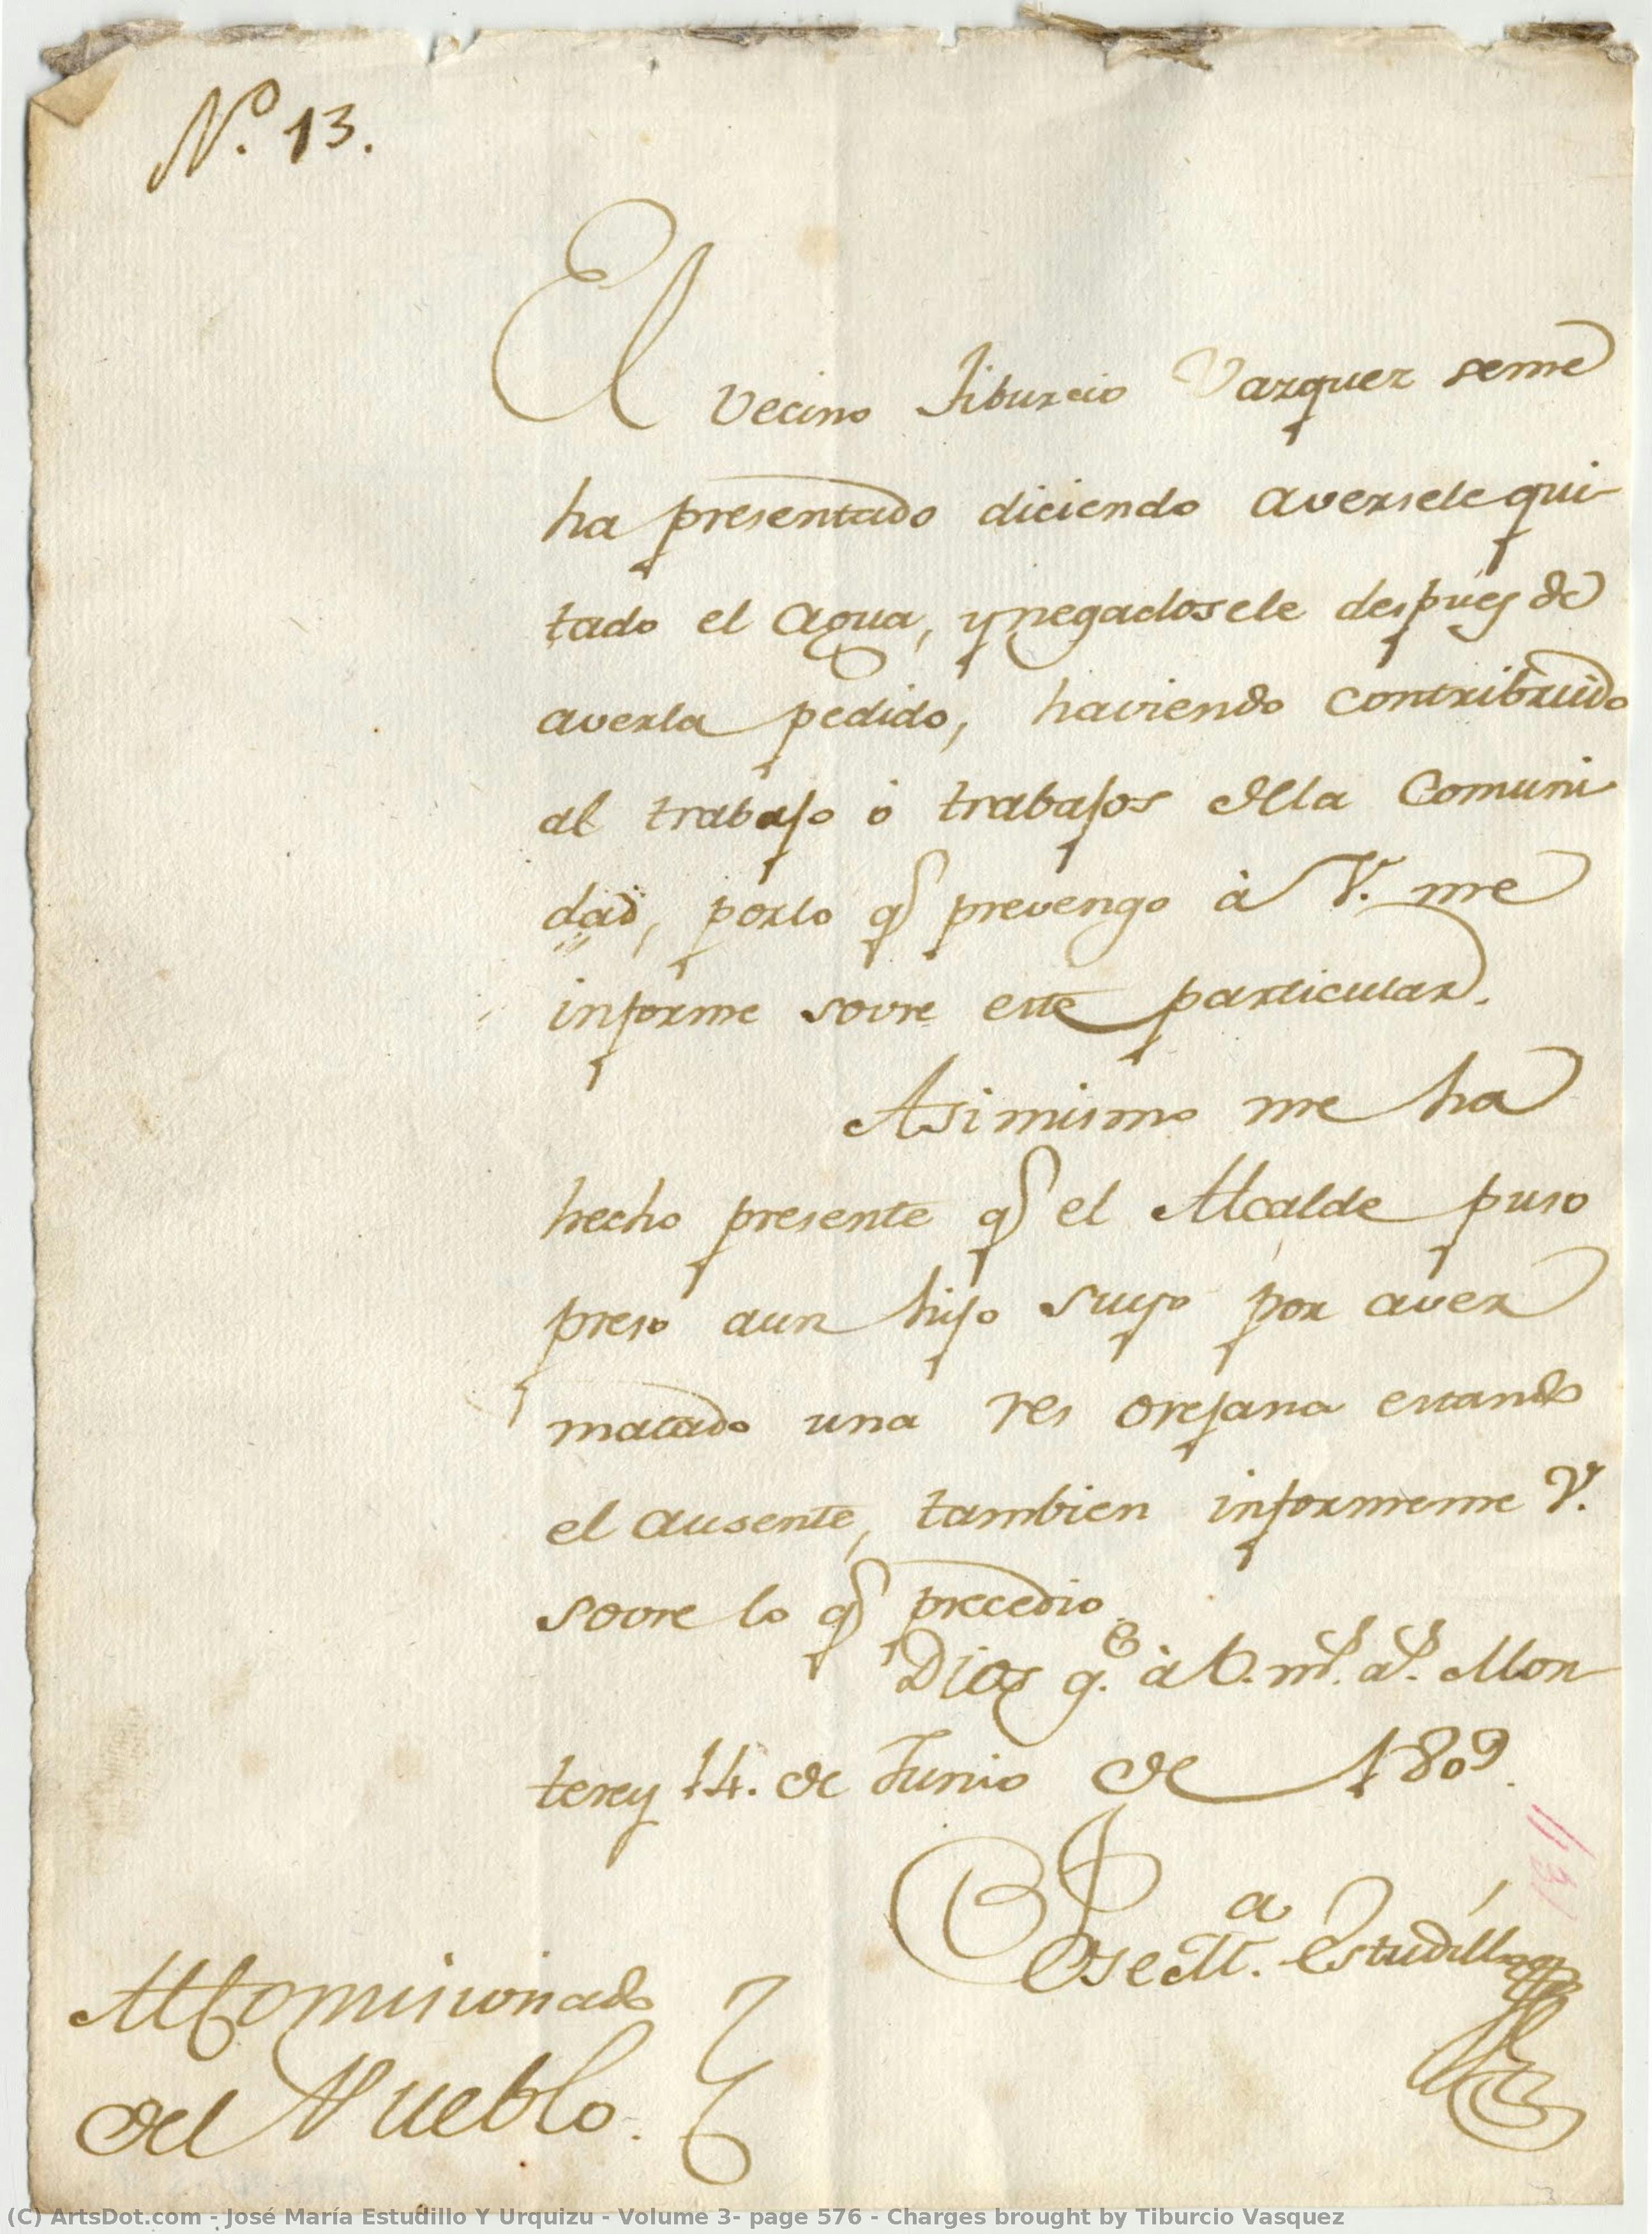 N.º 13.
El vecino Tiburcio Vazquez seme
ha presentado diciendo aversele qui-
tado el agua, y negadosele despues de
averla pedido, haviendo contribuido
al trabajo ó trabajos de la Comuni
dad, porlo q prevengo à V. me
informe sovre este particular.
Asi mismo me ha
hecho presente q el Alcalde puso
preso aun hijo suyo por aver
matado una res orejana estando
el ausente, tambien informeme V.
sovre lo q precedio.
Dios g.e à V. m.s a.s Mon-
terey 14. de Junio de 1809.
Jose M.a Estudillo
Al Comisionado
del Pueblo.
(C) ArtsDot.com - José María Estudillo Y Urquizu - Volume 3- page 576 - Charges brought by Tiburcio Vasquez